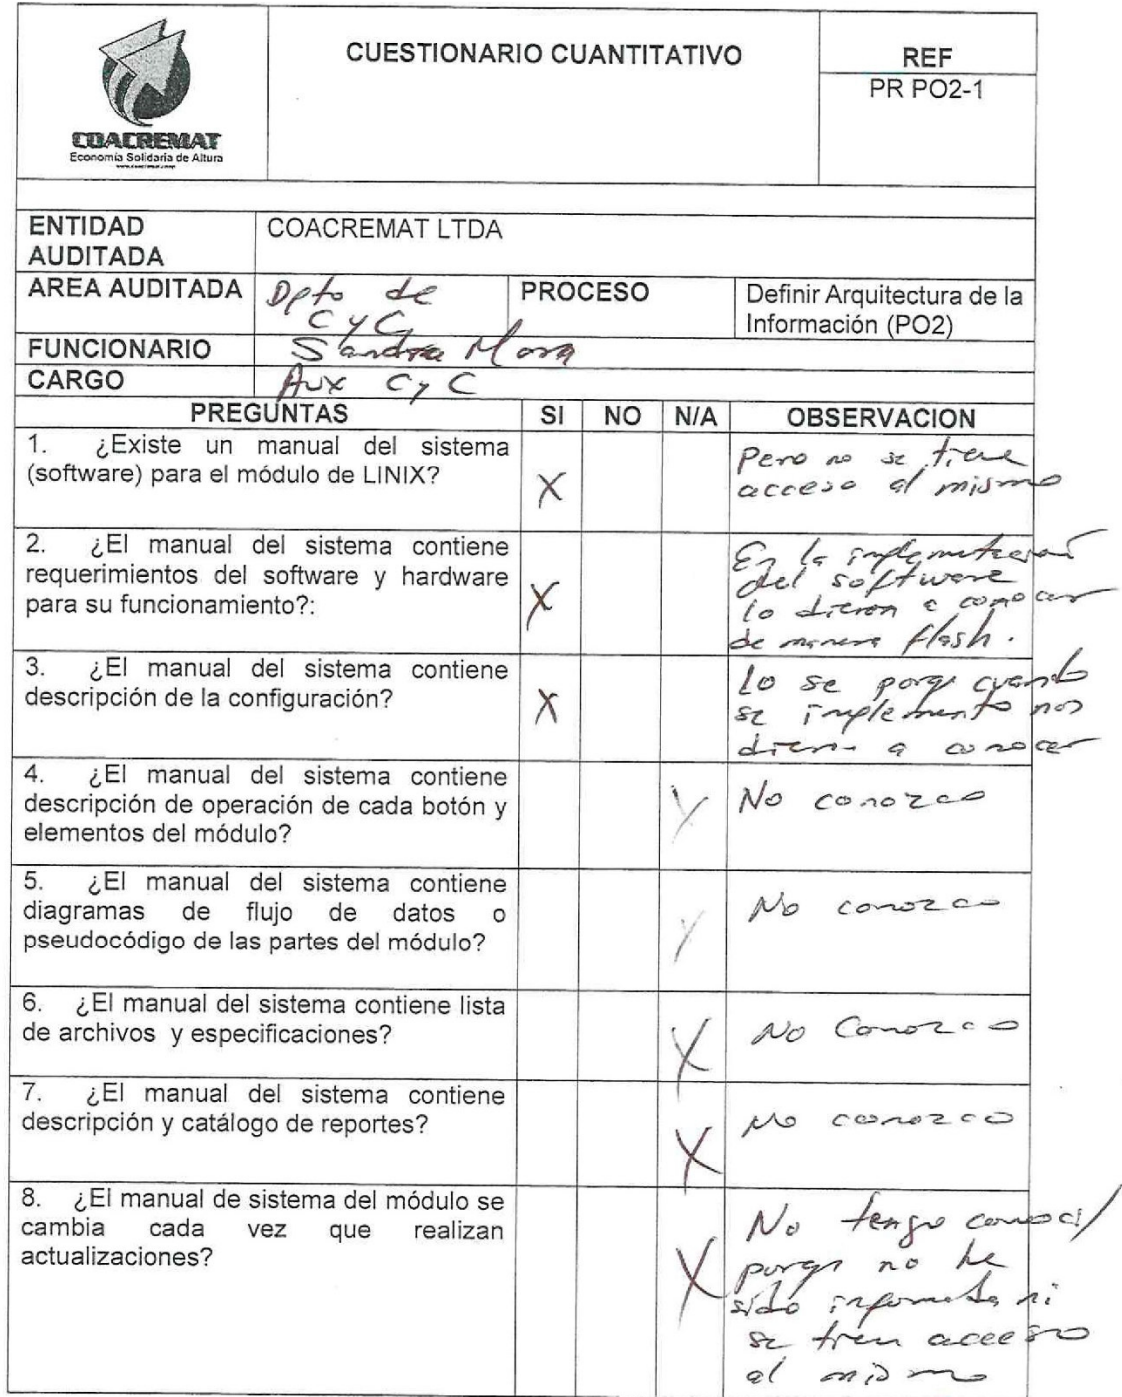 COACREMAT
Economía Solidaria de Altura
CUESTIONARIO CUANTITATIVO
REF
PR PO2-1
ENTIDAD
AUDITADA
COACREMAT LTDA
AREA AUDITADA
Dpto de
C y C
PROCESO
Definir Arquitectura de la
Información (PO2)
FUNCIONARIO
Sandra Mora
CARGO
Aux C y C
PREGUNTAS
SI
NO
N/A
OBSERVACION
1. ¿Existe un manual del sistema
(software) para el módulo de LINIX?
X
Pero no se tiene
acceso al mismo
2. ¿El manual del sistema contiene
requerimientos del software y hardware
para su funcionamiento?:
X
En la
del software
lo dieron a conocer
de manera flash.
3. ¿El manual del sistema contiene
descripción de la configuración?
X
Lo se porq cuando
se implemento nos
dieron a conocer
4. ¿El manual del sistema contiene
descripción de operación de cada botón y
elementos del módulo?
X
No conozco
5. ¿El manual del sistema contiene
diagramas de flujo de datos o
pseudocódigo de las partes del módulo?
X
No conozco
6. ¿El manual del sistema contiene lista
de archivos y especificaciones?
X
No Conozco
7. ¿El manual del sistema contiene
descripción y catálogo de reportes?
X
No conozco
8. ¿El manual de sistema del módulo se
cambia cada vez que realizan
actualizaciones?
X
No tengo conoci/
porq no he
sido informada ni
se tien acceso
al mismo